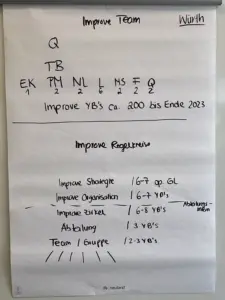 Improve Team
Würth
Q
TB
EK PM NL L MS F Q
1 2 2 6 2 2 2
Improve YB's ca. 200 bis Ende 2023
Improve Regelkreise
Improve Strategie / 6-7 op. GL
Improve Organisation / 6-7 YB's
Improve Zirkel / 6-8 YB's
Abteilung / 3 YB's
Team / Gruppe / 2-3 YB's